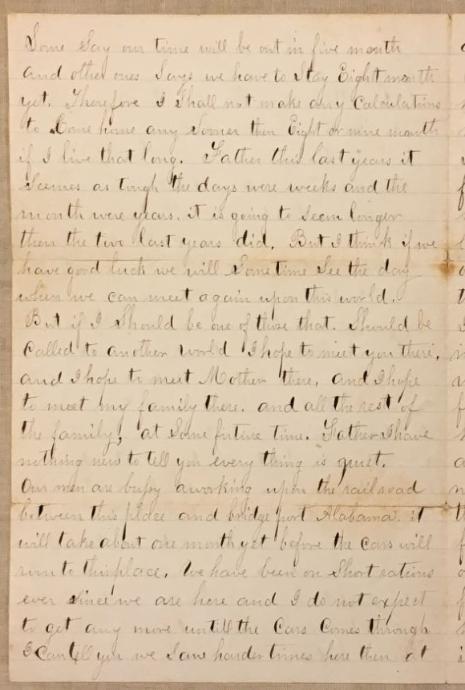 Some Say our time will be out in five month
and other ones Says we have to Stay Eight month
yet. Therefore I Shall not make any Calculations
to Come home any Sooner then Eight or nine month
if I live that long. Father this last years it
Seemes as tough the days were weeks and the
month were years. it is going to Seem longer
then the two last years did. But I think if we
have good luck we will Sometime See the day
when we can meet again upon this world.
But if I Should be one of those that. Should be
Called to another world I hope to meet you there,
and I hope to meet Mother there, and I hope
to meet my family there. and all the rest of
the family, at Some future time. Father I have
nothing new to tell you every thing is quiet.
Our men are busy aworking upon the railroad
between this place and bridge port Alabama. it
will take about one month yet before the Cars will
run to this place. We have been on Short rations
ever Since we are here and I do not expect
to get any more untill the Cars Comes through
I Can tell you we Saw harder times here then at